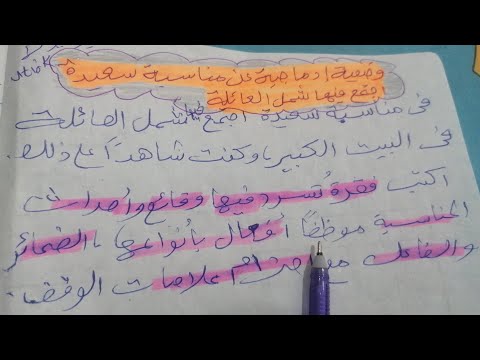 وضعية إدماجية عن مناسبة سعيدة
اجتمع فيها شمل العائلة
في مناسبة سعيدة اجتمع فيها شمل العائلة
في البيت الكبير، وكنت شاهدًا على ذلك.
اكتب فقرة تسرد فيها وقائع وأحداث
المناسبة موظفًا أفعال بأنواعها، الضمائر
والفاعل مع احترام علامات الوقف.